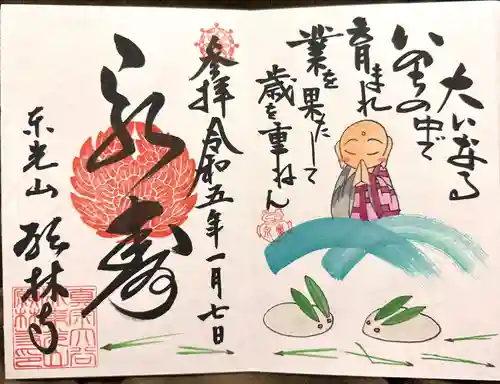 大いなる
いのちの中で
育まれ
業を果たして
歳を重ねん
参拝 令和五年一月七日
永寿
東光山 林寺